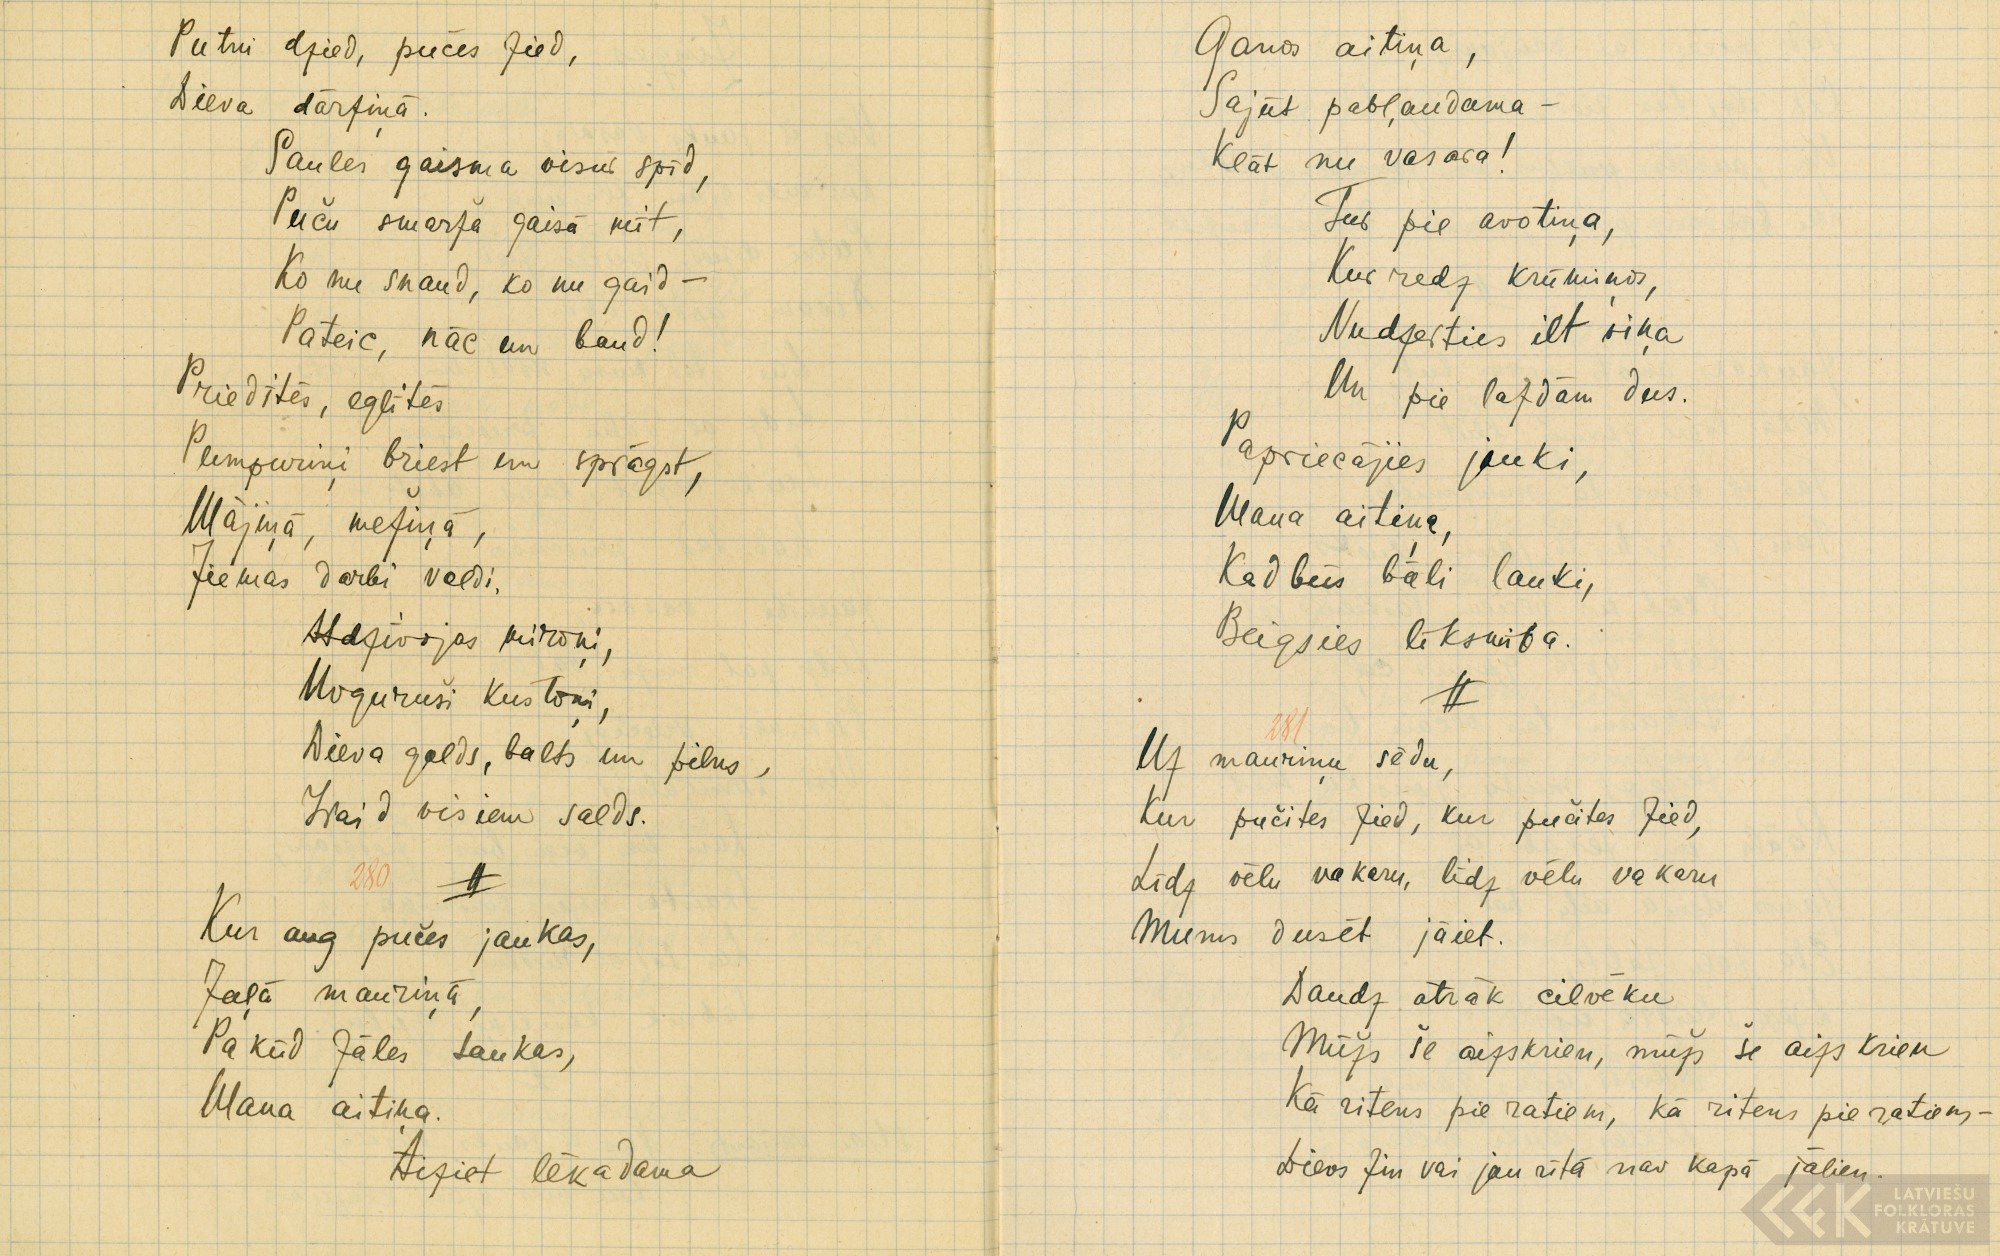 Putni dzied, pučes zied,
Dieva dārziņā.
Saules gaisma visur spīd,
Puču smarža gaisā mīt,
Ko nu snaud, ko nu gaid —
Pateic, nāc un baud!
Priedītēs, eglītēs
Pumpuriņi briest un sprāgst,
Mājiņā, mežiņā,
Ziemas darbi valdi.
Atdzīvojas miroņi,
Noguruši kustoņi,
Dieva galds, balts un pilns,
Iraid visiem salds.
280
Kur aug pučes jaukas,
Zaļā mauriņā,
Pakūd zāles laukas,
Mana aitiņa.
Aiziet lēkadama
Ganos aitiņa,
Sajūt pabļaudama —
Klāt nu vasara!
Tur pie avotiņa,
Kur redz krūmiņos,
Nudzerties ilt viņa
Un pie lazdām dus.
Papriecājies jauki,
Mana aitiņa,
Kad būs bāli lauki,
Beigsies līksmība.
281
Uz mauriņu sēdu,
Kur pučites zied, kur pučites zied,
Līdz vēlu vakaru, līdz vēlu vakaru
Mums dusēt jāiet.
Daudz ātrāk cilvēku
Mūžs še aizskrien, mūžs še aizskrien
Kā ritens pie ratiem, kā ritens pie ratiem —
Dievs zin vai jau rītā nav kapā jālien.
LATVIEŠU
FOLKLORAS
KRĀTUVE